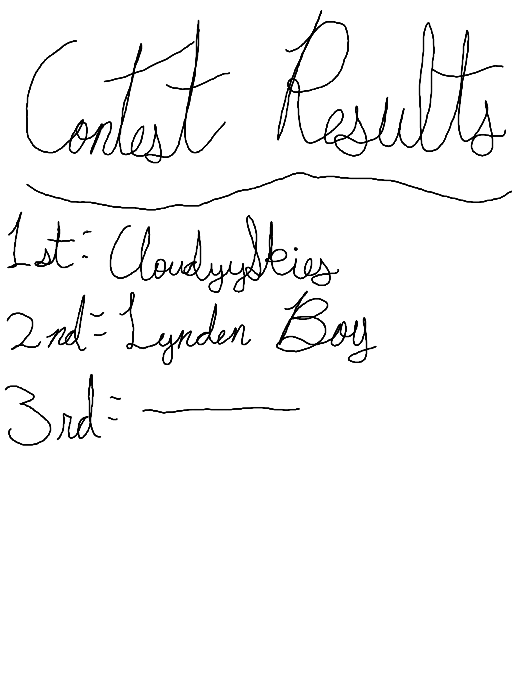 Contest Results
1st= CloudyySkies
2nd= Lynden Boy
3rd= ———